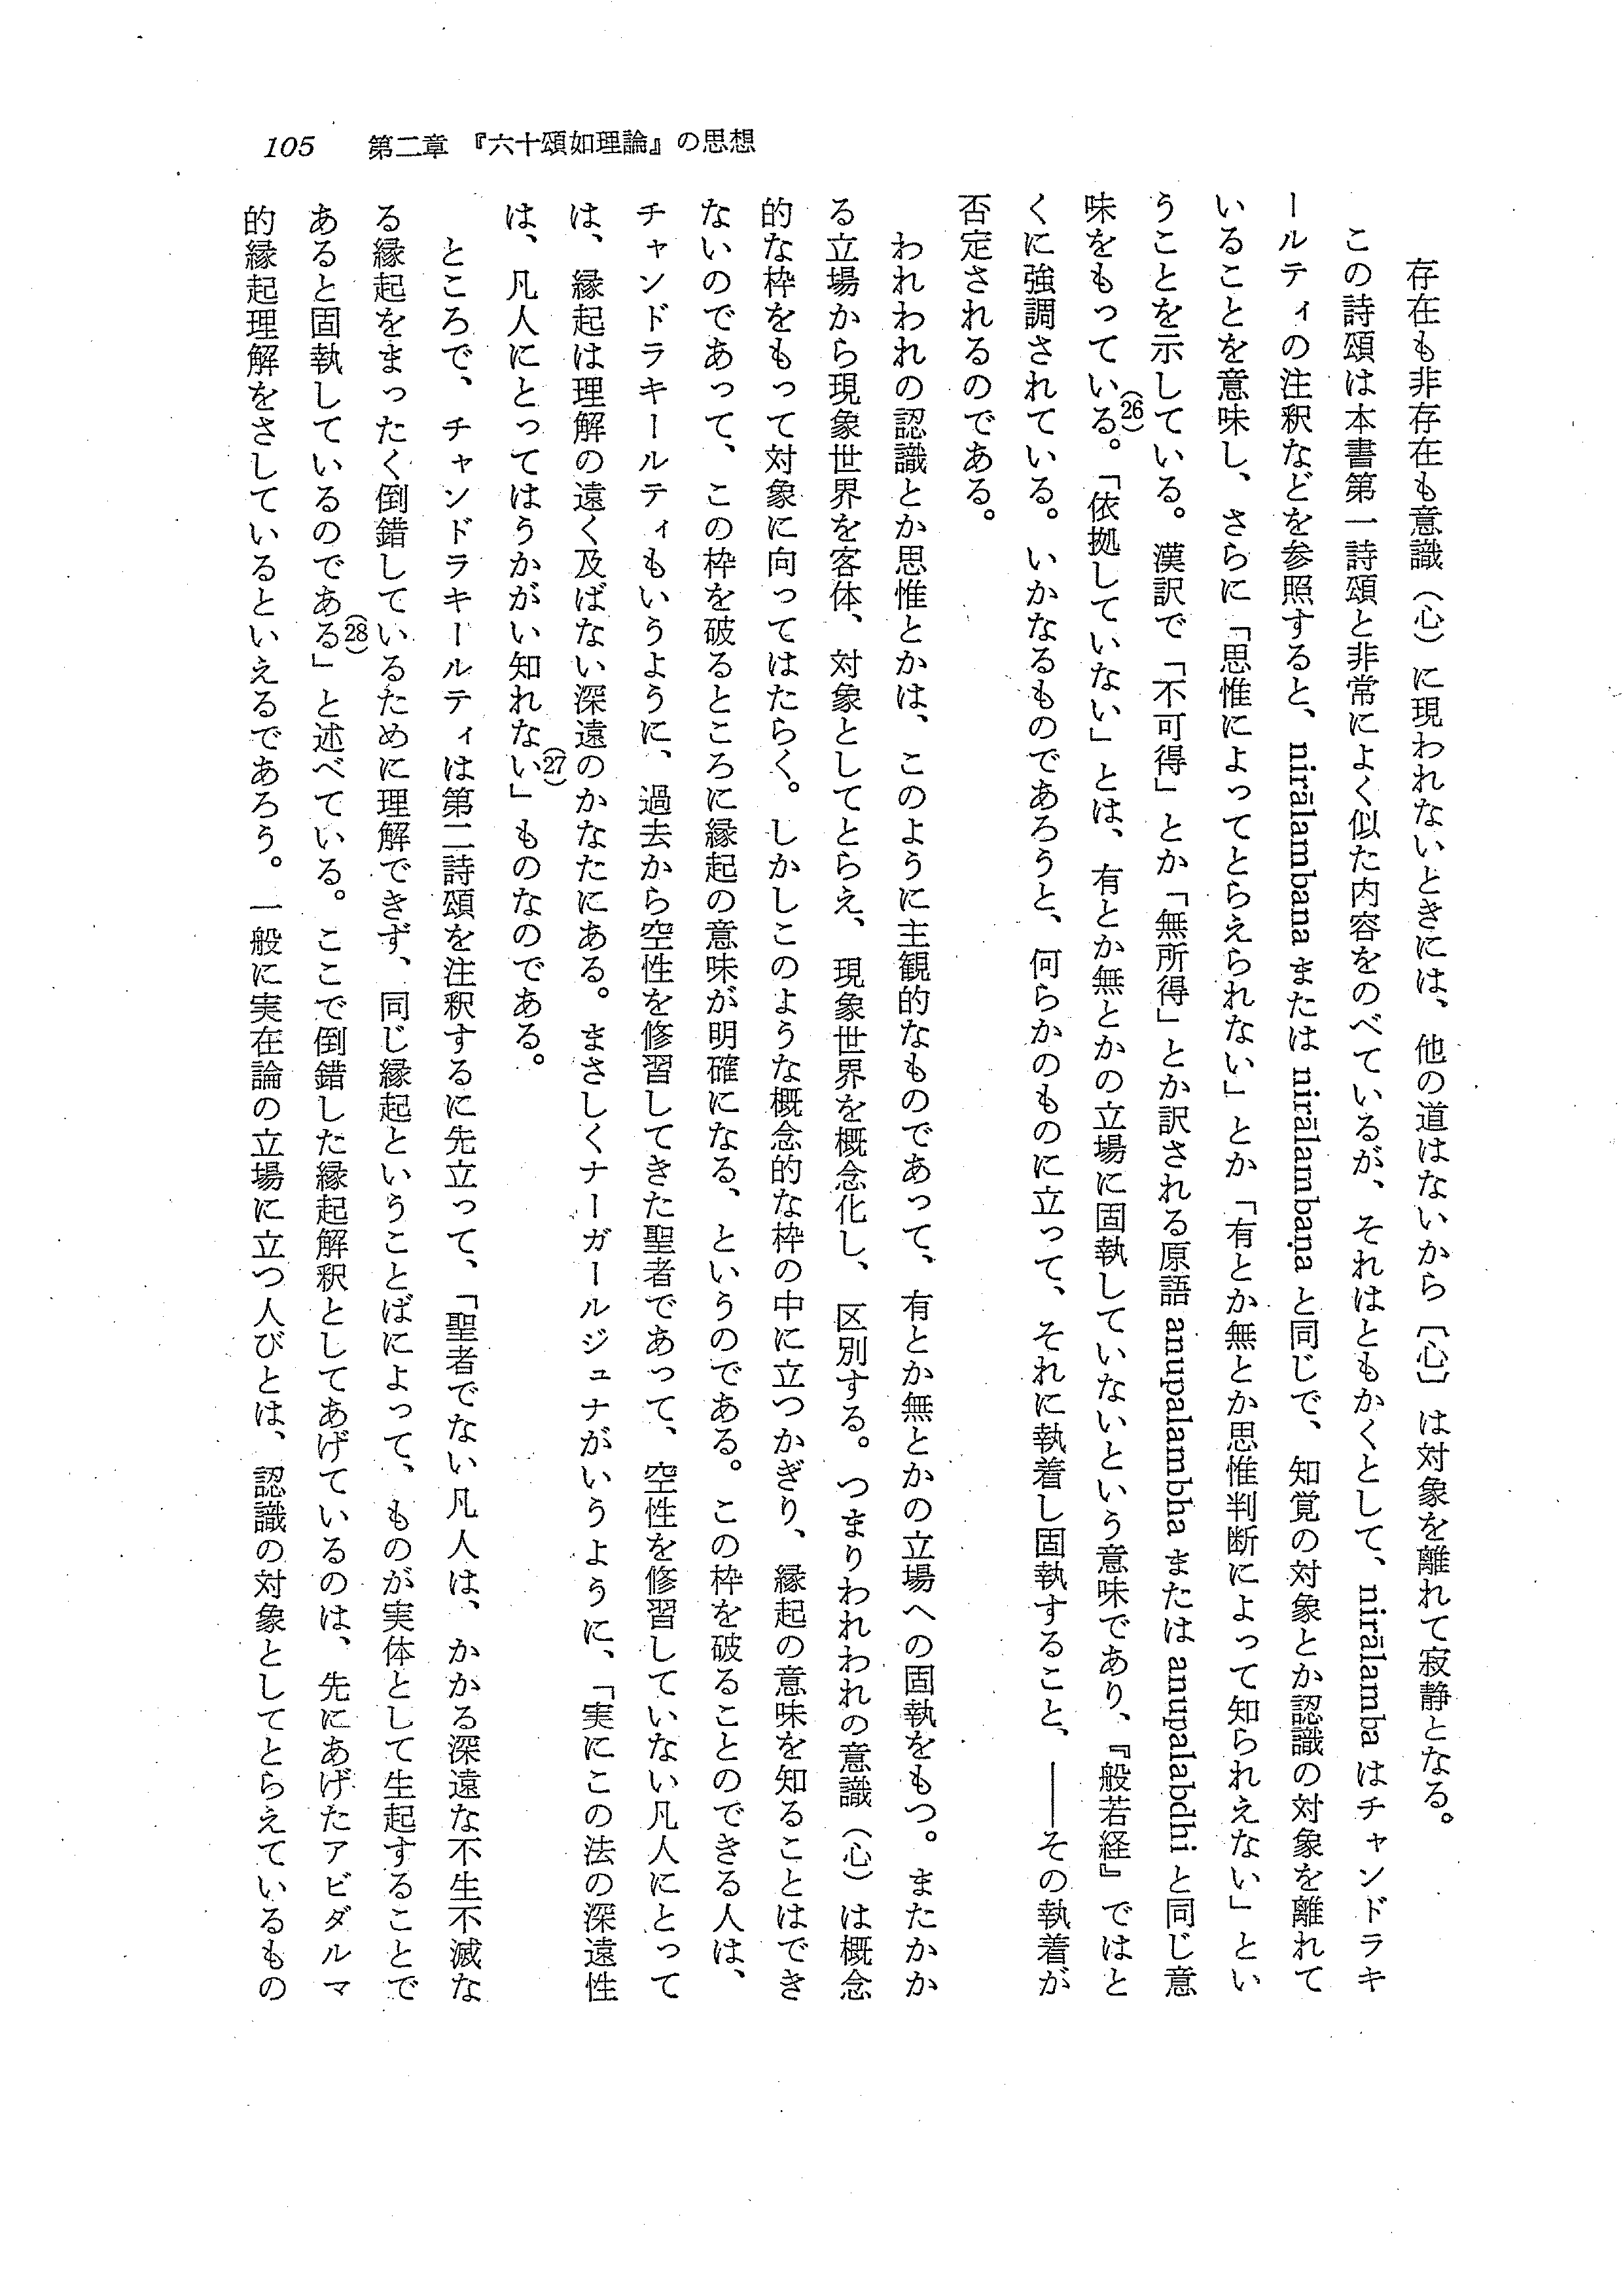 105　第二章　『六十頌如理論』の思想
存在も非存在も意識（心）に現われないときには、他の道はないから〔心〕は対象を離れて寂静となる。
この詩頌は本書第一詩頌と非常によく似た内容をのべているが、それはともかくとして、nirālamba はチャンドラキ
ールティの注釈などを参照すると、nirālambana または nirālambaṇa と同じで、知覚の対象とか認識の対象を離れて
いることを意味し、さらに「思惟によってとらえられない」とか「有とか無とか思惟判断によって知られえない」とい
うことを示している。漢訳で「不可得」とか「無所得」とか訳される原語 anupalambha または anupalabdhi と同じ意
味をもっている(26)。「依拠していない」とは、有とか無とかの立場に固執していないという意味であり、『般若経』ではと
くに強調されている。いかなるものであろうと、何らかのものに立って、それに執着し固執すること、――その執着が
否定されるのである。
われわれの認識とか思惟とかは、このように主観的なものであって、有とか無とかの立場への固執をもつ。またかか
る立場から現象世界を客体、対象としてとらえ、現象世界を概念化し、区別する。つまりわれわれの意識（心）は概念
的な枠をもって対象に向ってはたらく。しかしこのような概念的な枠の中に立つかぎり、縁起の意味を知ることはでき
ないのであって、この枠を破るところに縁起の意味が明確になる、というのである。この枠を破ることのできる人は、
チャンドラキールティもいうように、過去から空性を修習してきた聖者であって、空性を修習していない凡人にとって
は、縁起は理解の遠く及ばない深遠のかなたにある。まさしくナーガールジュナがいうように、「実にこの法の深遠性
は、凡人にとってはうかがい知れない(27)」ものなのである。
ところで、チャンドラキールティは第二詩頌を注釈するに先立って、「聖者でない凡人は、かかる深遠な不生不滅な
る縁起をまったく倒錯しているために理解できず、同じ縁起ということばによって、ものが実体として生起することで
あると固執しているのである(28)」と述べている。ここで倒錯した縁起解釈としてあげているのは、先にあげたアビダルマ
的縁起理解をさしているといえるであろう。一般に実在論の立場に立つ人びとは、認識の対象としてとらえているもの